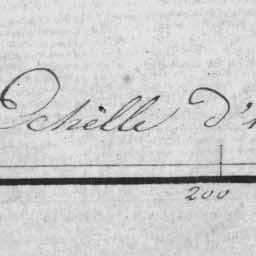 Echelle d'
200